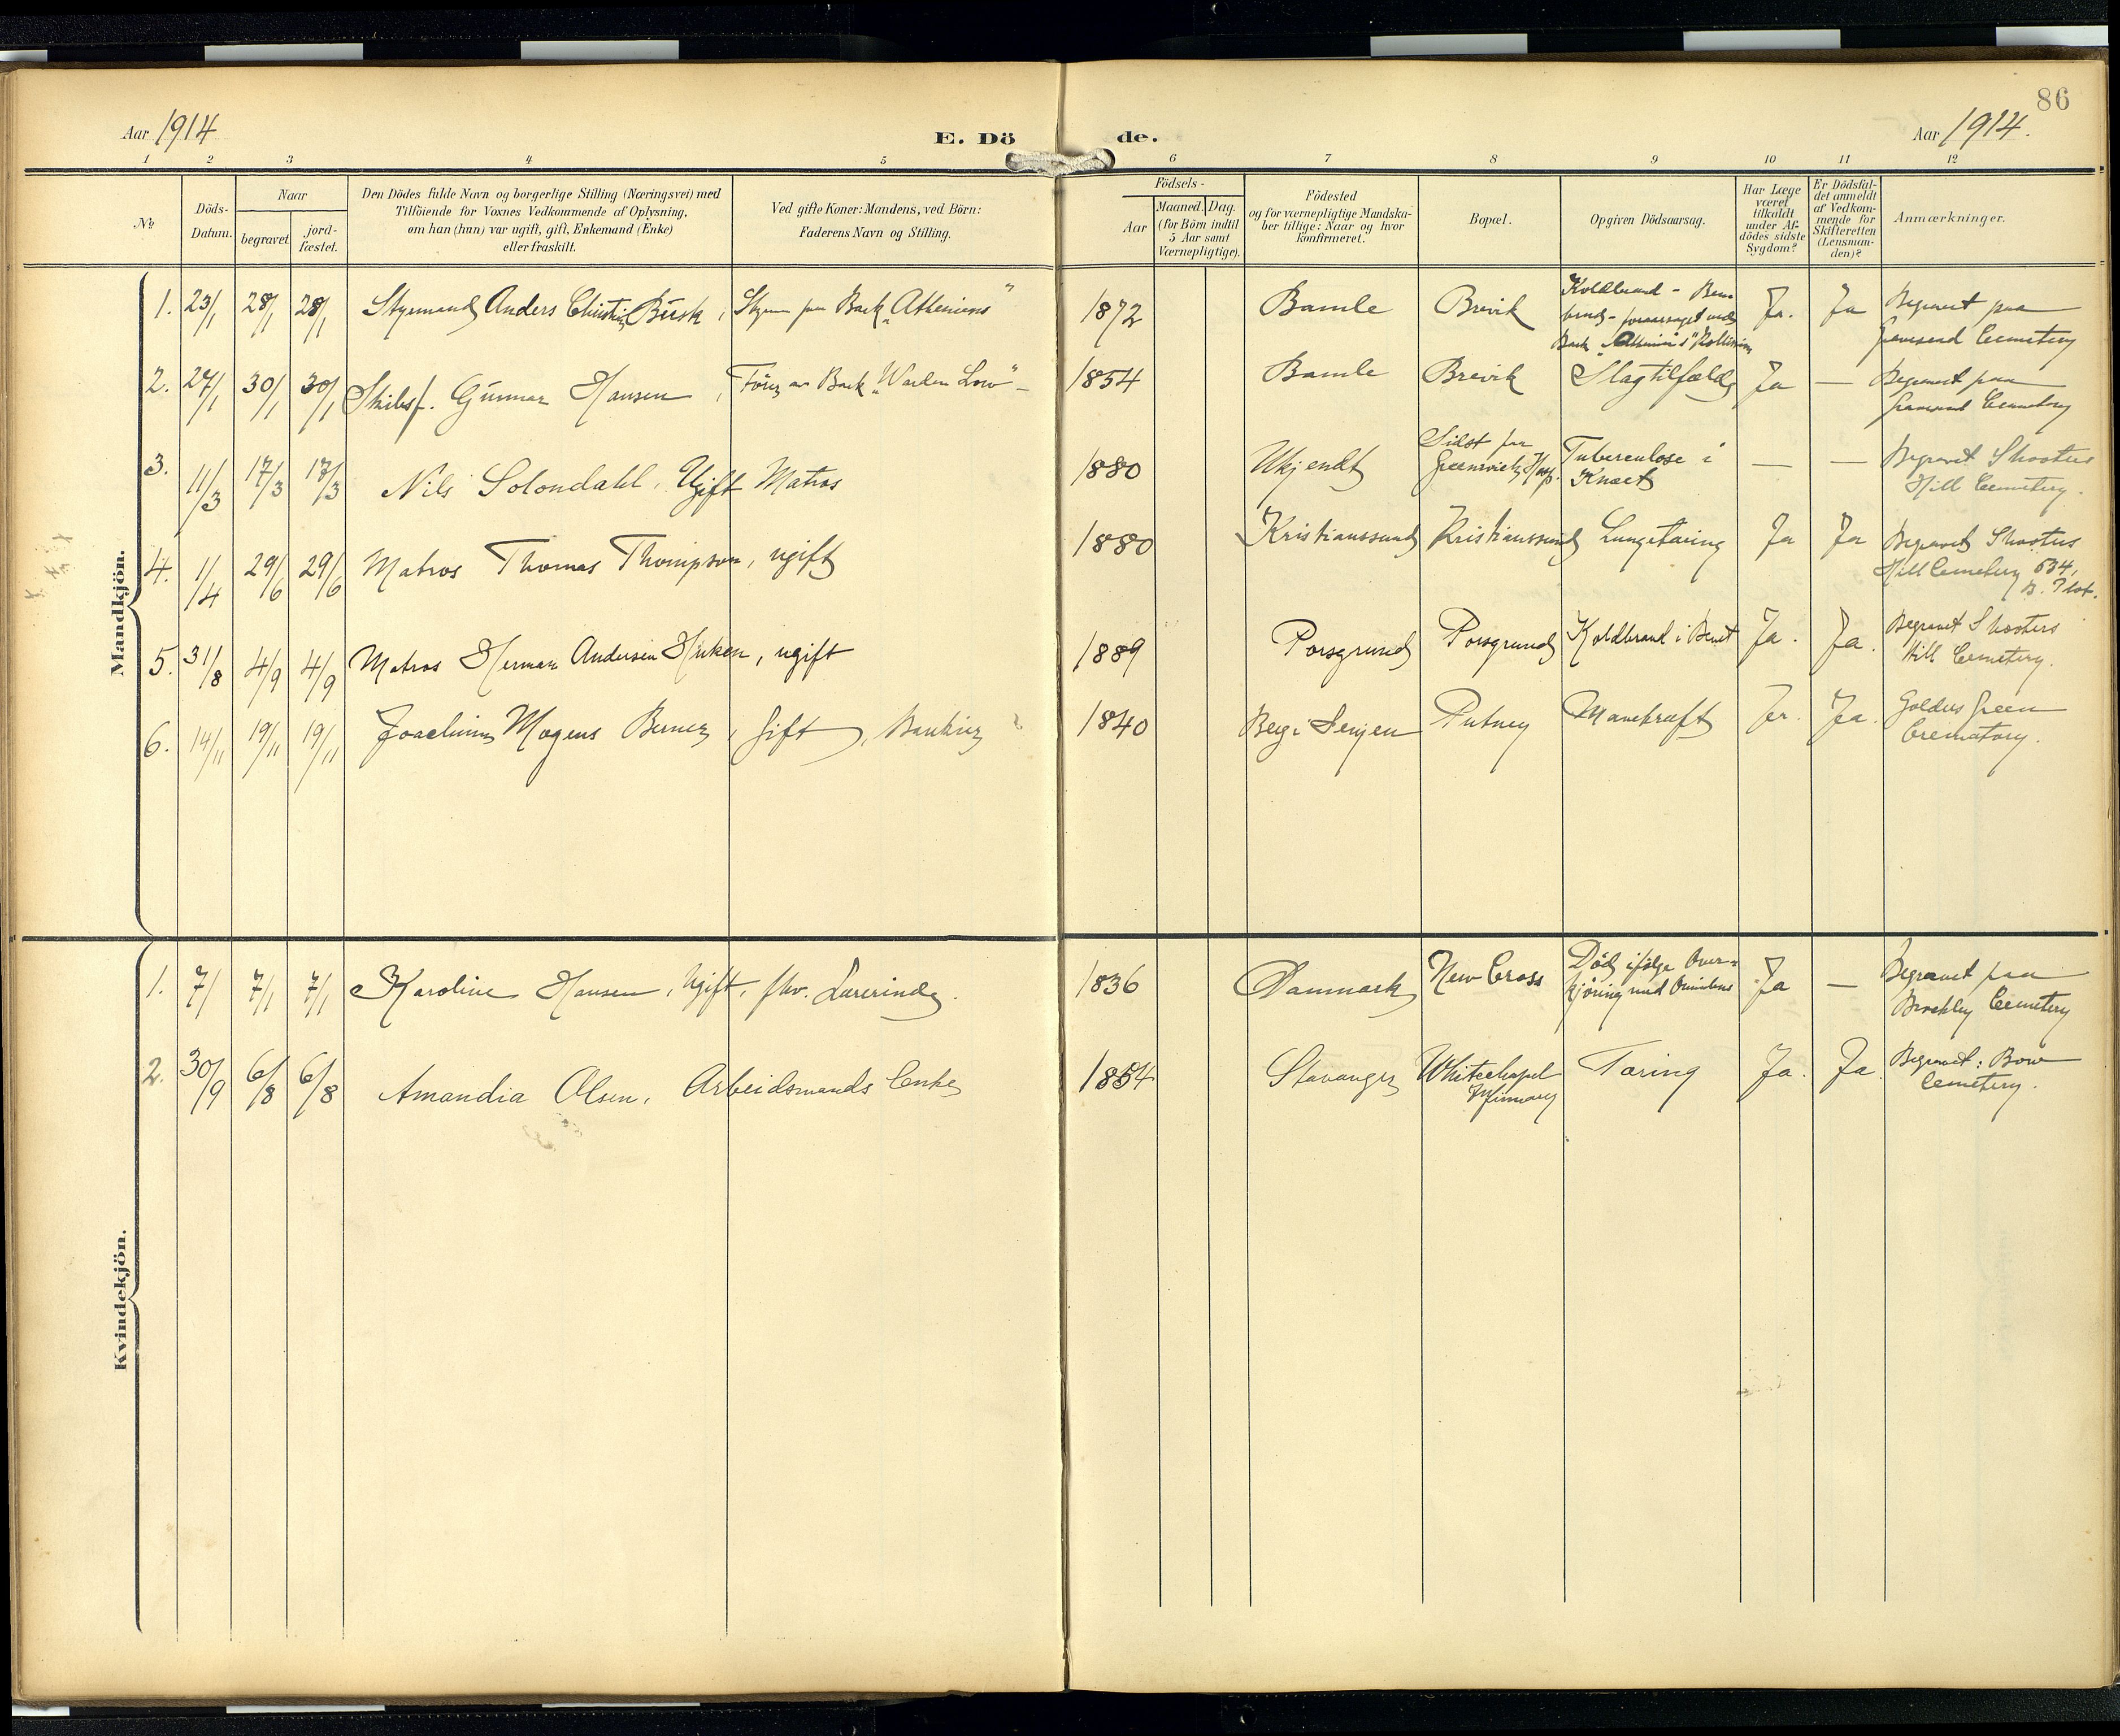 86
Aar 1914
E. Dö de.
Aar 1914.
1 2 3 4 5 6 7 8 9 10 11 12
No
Döds-
Datum.
Naar
begravet.
jord-
fæstet.
Den Dödes fulde Navn og borgerlige Stilling (Næringsvei) med
Tilföiende for Voxnes Vedkommende af Oplysning,
om han (hun) var ugift, gift, Enkemand (Enke)
eller fraskilt.
Ved gifte Koner: Mandens, ved Börn:
Faderens Navn og Stilling.
Födsels-
Aar
Maaned. Dag.
(for Börn indtil
5 Aar samt
Værnepligtige).
Födested
og for værnepligtige Mandska-
ber tillige: Naar og hvor
konfirmeret.
Bopæl.
Opgiven Dödsaarsag.
Har Læge
været
tilkaldt
under Af-
dödes sidste
Sygdom?
Er Dödsfal-
det anmeldt
af Vedkom-
mende for
Skifteretten
(Lensman-
den)?
Anmærkninger.
Mandkjön.
1. 23/1 28/1 28/1 Styrmand Anders Christian Busk, Styrm paa Bark "Atheniens" 1872 Bamle Brevik Koldbrand - Ben-
brud - foraarsaget ved
Bark Ja. Ja Begravet paa
Gravesend Cemetery
2. 27/1 30/1 30/1 Skibsf. Gunnar Hansen, Förer av Bark 1854 Bamle Brevik Slagtilfælde Ja — Begravet paa
Gravesend Cemetery
3. 11/3 17/3 17/3 Nils Solondahl, Ugift Matros 1880 Ukjendt Sidst paa
Greenwich Hosp. Tuberculose i
Knæet — — Begravet Shooters
Hill Cemetery.
4. 1/4 29/6 29/6 Matros Thomas Thompson, ugift 1880 Kristianssund Kristianssund Lungetæring Ja Ja Begravet Shooters
Hill Cemetery 634,
B. Plot.
5. 31/8 4/9 4/9 Matros Herman Andersen, ugift 1889 Porsgrund Porsgrund Koldbrand i Benet Ja. Ja. Begravet Shooters
Hill Cemetery.
6. 14/11 19/11 19/11 Joachim Mogens Berner, Gift, Bankier 1840 Berg i Senjen Putney Mavekræft Ja. Ja. Golders Green
Crematory.
Kvindekjön.
1. 7/ 7/1 7/1 Karoline Hansen, Ugift, fhv. Lærerinde. 1836 Danmark New Cross Död ifølge Over-
kjöring med Omnibus Ja — Begravet paa
Brockley Cemetery
2. 30/9 6/8 6/8 Amandia Olsen, Arbeidsmands Enke 1854 Stavanger Whitechapel
Infirmary Tæring Ja. Ja. Begravet: Bow
Cemetery.